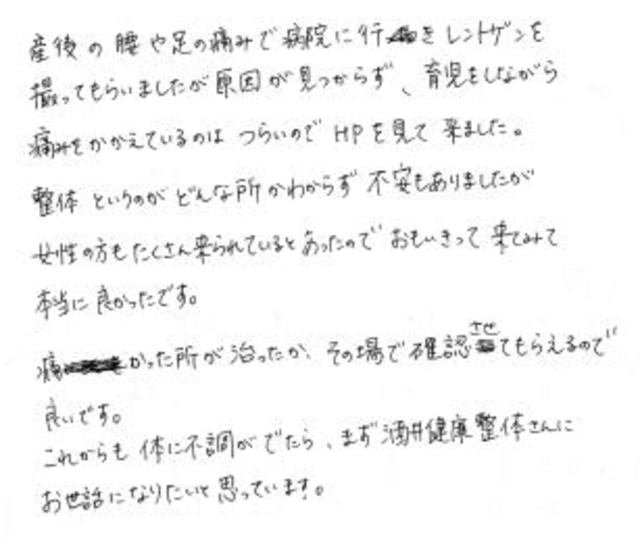 産後の腰や足の痛みで病院に行き レントゲンを
撮ってもらいましたが原因が見つからず、育児をしながら
痛みをかかえているのは つらいので HPを見て 来ました。
整体 というのが どんな所かわからず 不安もありましたが
女性の方もたくさん来られているとあったので おもいきって 来てみて
本当に 良かったです。
痛かった所が治ったか、その場で確認させてもらえるので
良いです。
これからも 体に不調がでたら、まず酒井健康整体さんに
お世話になりたいと思っています。